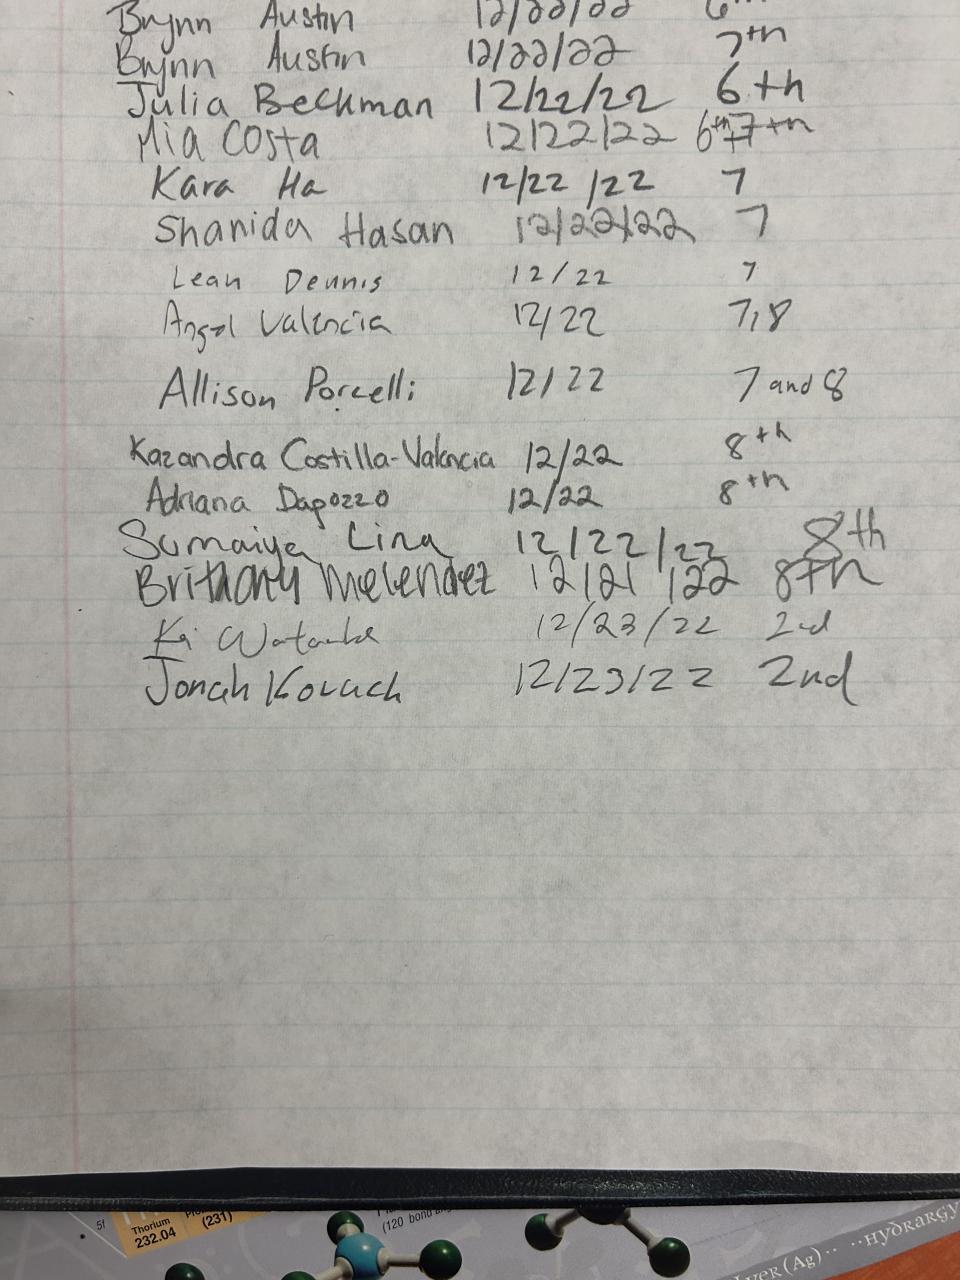 Brynn Austin 12/22/22 6th
Brynn Austin 12/22/22 7th
Julia Beckman 12/22/22 6th
Mia Costa 12/22/22 6th 7th
Kara Ha 12/22/22 7
Shanida Hasan 12/22/22 7
Leah Dennis 12/22 7
Angel Valencia 12/22 7,8
Allison Porcelli 12/22 7 and 8
Kazandra Costilla-Valencia 12/22 8th
Adriana Dapozzo 12/22 8th
Sumaiya Lina 12/22/22 8th
Brithany Melendez 12/21/22 8th
Kai Watanabe 12/23/22 2nd
Jonah Kovach 12/23/22 2nd
5f
Thorium
232.04
(231)
(120 bond
lver (Ag)·· ··Hydrargy